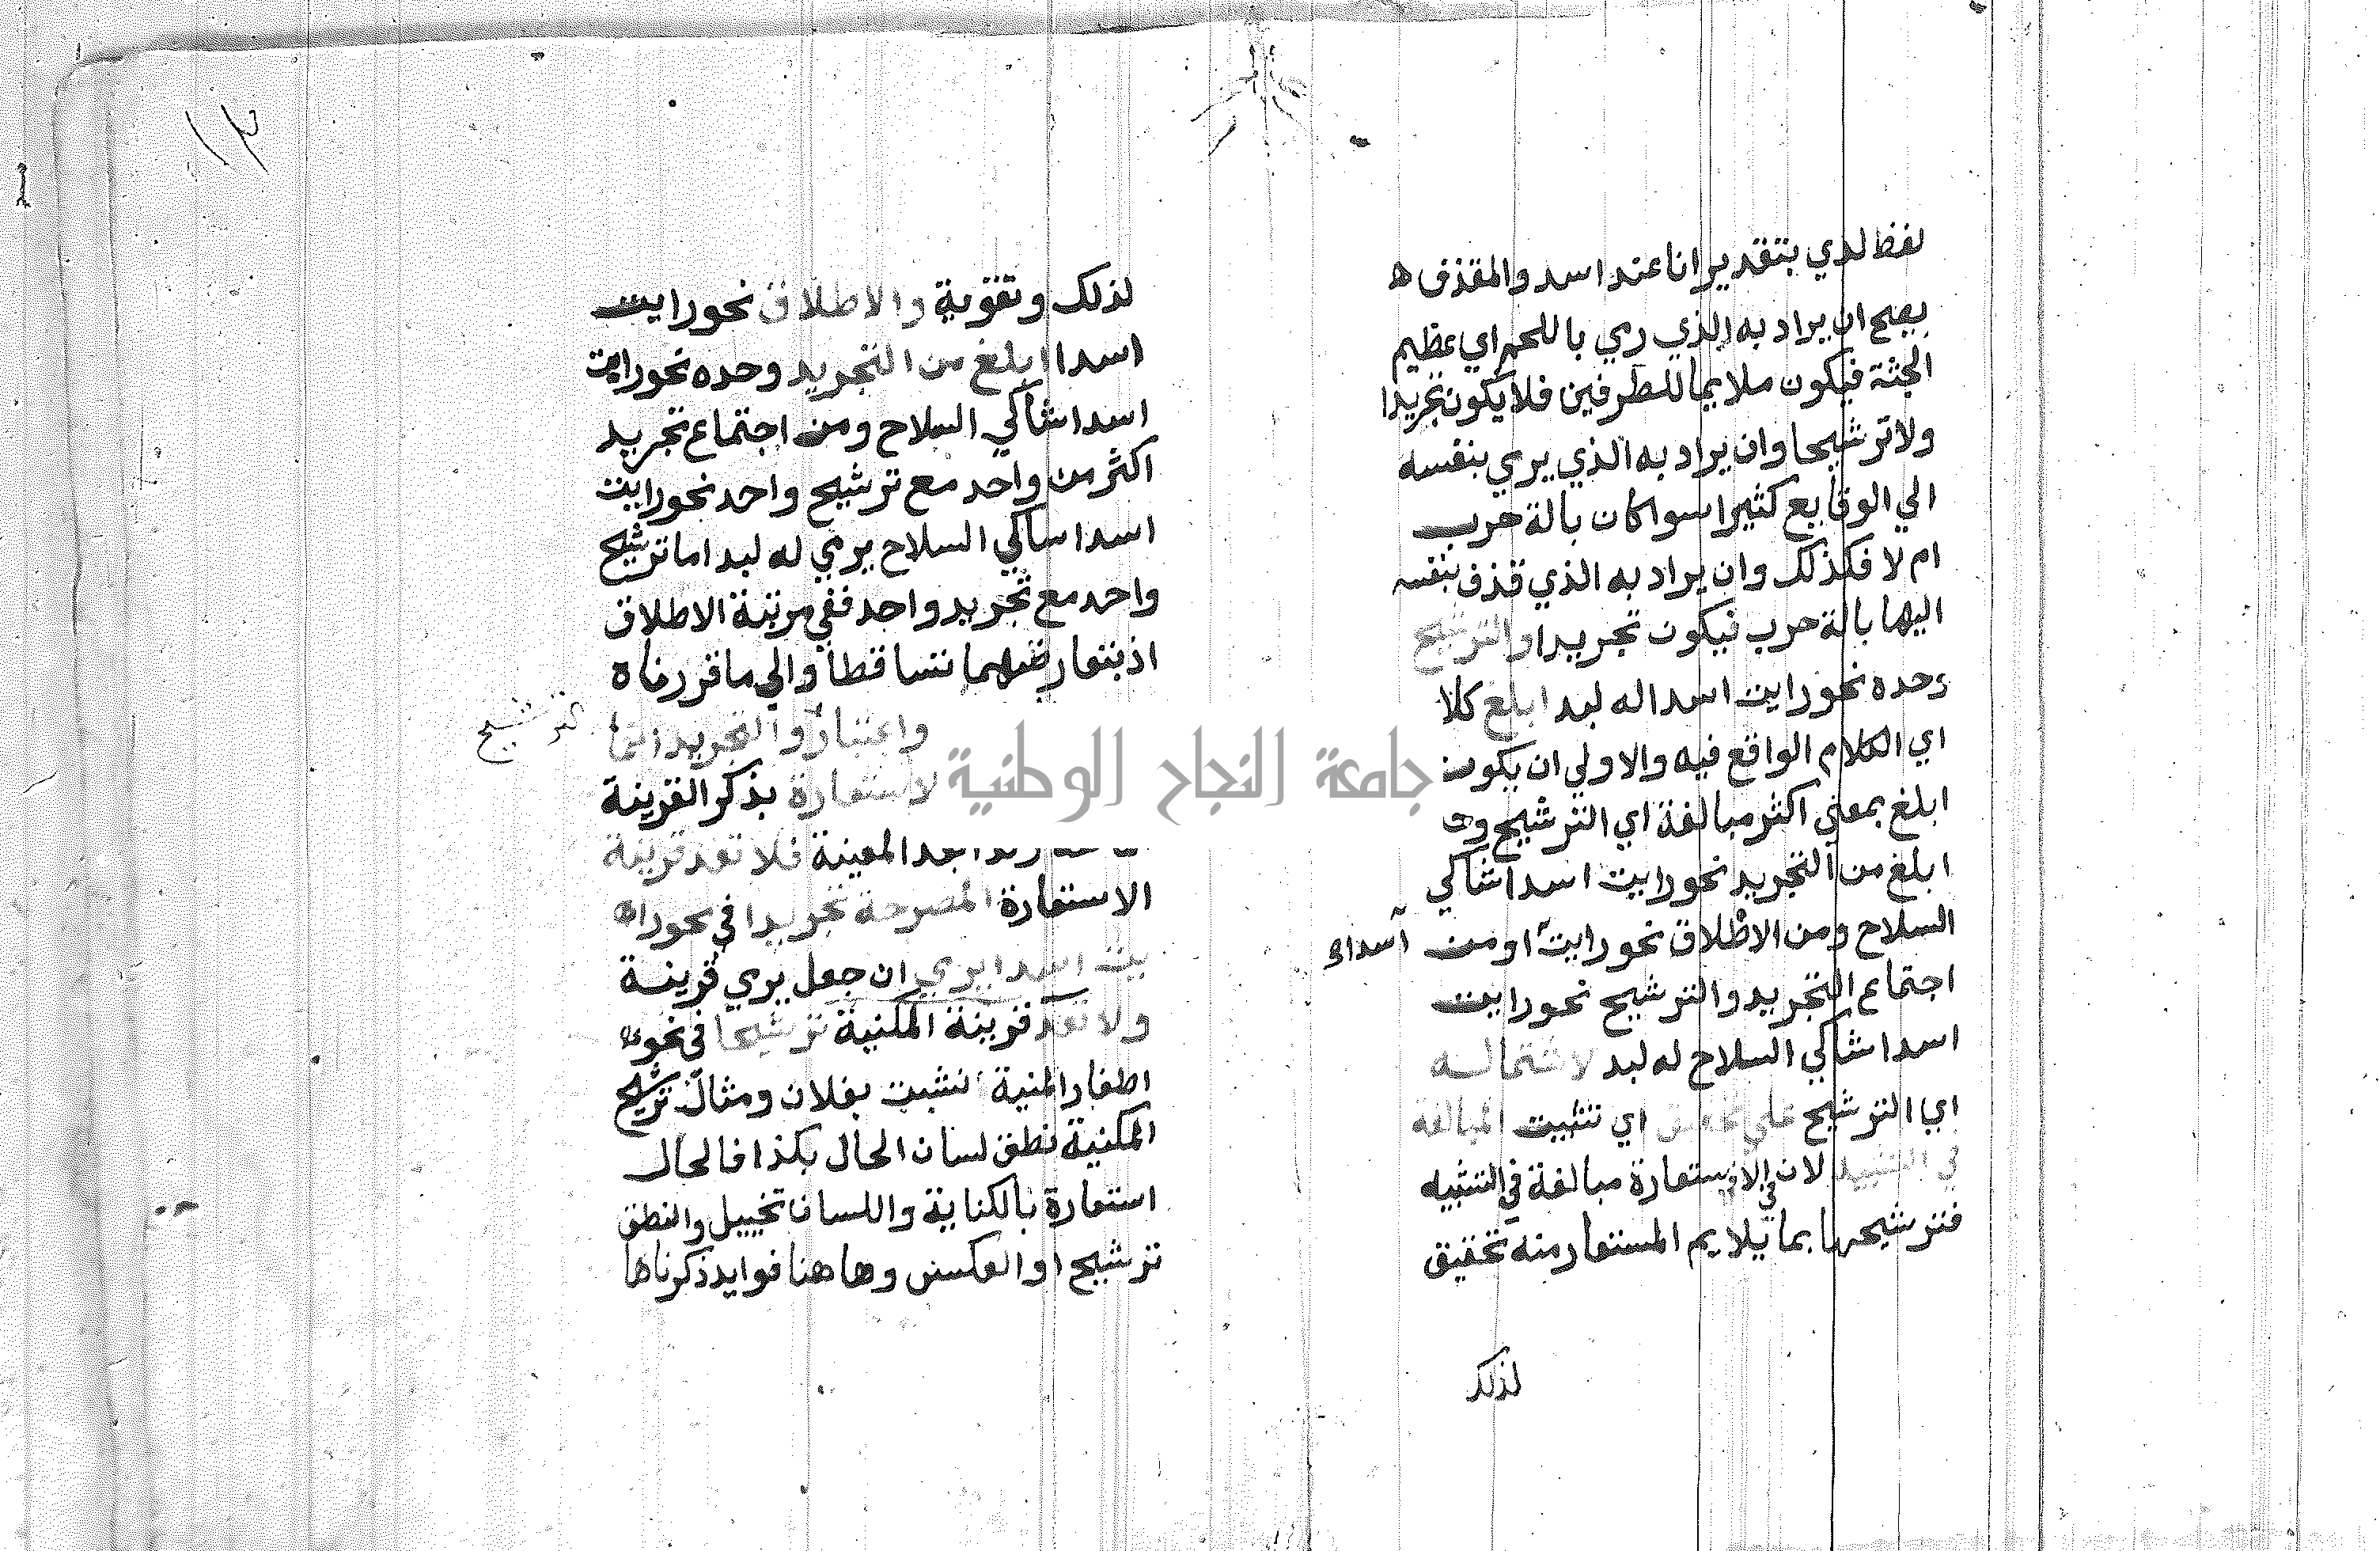 لفظ لدي بتقدير انا عند اسد والمقذف
يصح ان يراد به الذي رمي باللحم اي عظيم
الجثة فيكون ملايما للطرفين فلا يكون تجريدا
ولا ترشيحا وان يراد به الذي يرمي بنفسه
الي الوقايع كثيرا سوا كان بالة حرب
ام لا فكذلك وان يراد به الذي قذف بنفسه
اليها بالة حرب فيكون تجريدا والترشيح
وحده نحو رايت اسدا له لبد ابلغ كلا
اي الكلام الواقع فيه والاولي ان يكون
ابلغ بمعني اكثر مبالغة اي الترشيح
ابلغ من التجريد نحو رايت اسدا شاكي
السلاح ومن الاطلاق نحو رايت اسدا ومن
اجتماع التجريد والترشيح نحو رايت
اسدا شاكي السلاح له لبد لاشتماله
اي الترشيح علي تحقيق اي تثبيت المبالغة
في التشبيه لان في الاستعارة مبالغة في التشبيه
فترشيحها بما يلايم المستعار منه تحقيق
لذلك
١٣
لذلك وتقوية والاطلاق نحو رايت
اسدا ابلغ من التجريد وحده نحو رايت
اسدا شاكي السلاح ومن اجتماع تجريد
اكثر من واحد مع ترشيح واحد نحو رايت
اسدا شاكي السلاح يرمي له لبد اما ترشيح
واحد مع تجريد واحد ففي مرتبة الاطلاق
اذ بتعارضهما تساقطا والي ما قررناه
واعتبار والتجريد انما
الترشيح
الاستعارة بذكر القرينة
المعينة فلا تعد قرينة
الاستعارة المصرحة تجريدا في نحو را
يت اسدا يرمي ان جعل يرمي قرينة
ولا تعد قرينة المكنية ترشيحا في نحو
اظفار المنية نشبت بفلان ومثال ترشيح
المكنية نطق لسان الحال بكذا فالحال
استعارة بالكناية واللسان تخييل والنطق
ترشيح او العكس وهاهنا فوايد ذكرناها
جامعة النجاح الوطنية